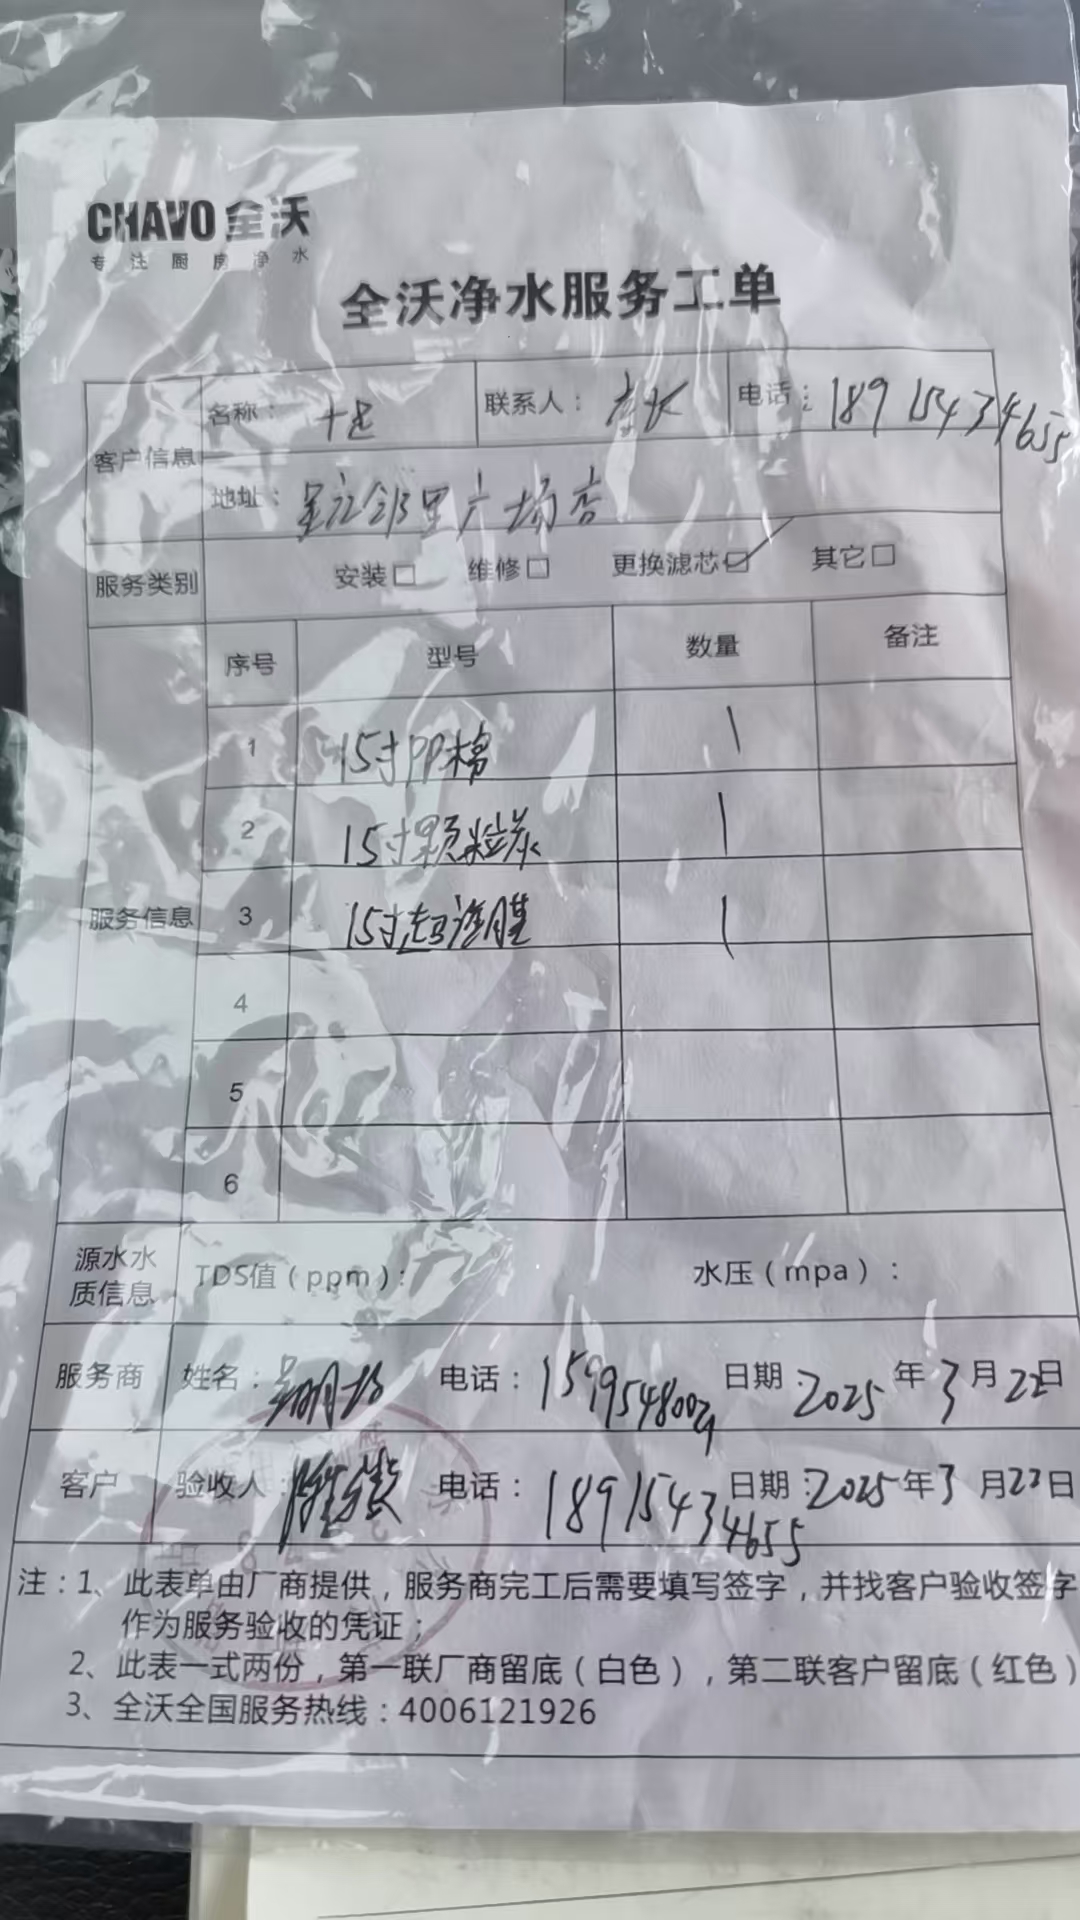 CHAVO 全沃
专注厨房净水
全沃净水服务工单
客户信息 名称： 联系人：店长 电话：18915434655
地址：星江邻里广场店
服务类别 安装□ 维修□ 更换滤芯☑ 其它□
服务信息 序号 型号 数量 备注
1 15寸PP棉 1
2 15寸颗粒炭 1
3 15寸超滤膜 1
4
5
6
源水水质信息 TDS值（ppm）： 水压（mpa）：
服务商 姓名： 电话：15995480029 日期：2025年3月22日
客户 验收人： 电话：18915434655 日期：2025年3月22日
注：1、此表单由厂商提供，服务商完工后需要填写签字，并找客户验收签字
作为服务验收的凭证；
2、此表一式两份，第一联厂商留底（白色），第二联客户留底（红色）
3、全沃全国服务热线：4006121926